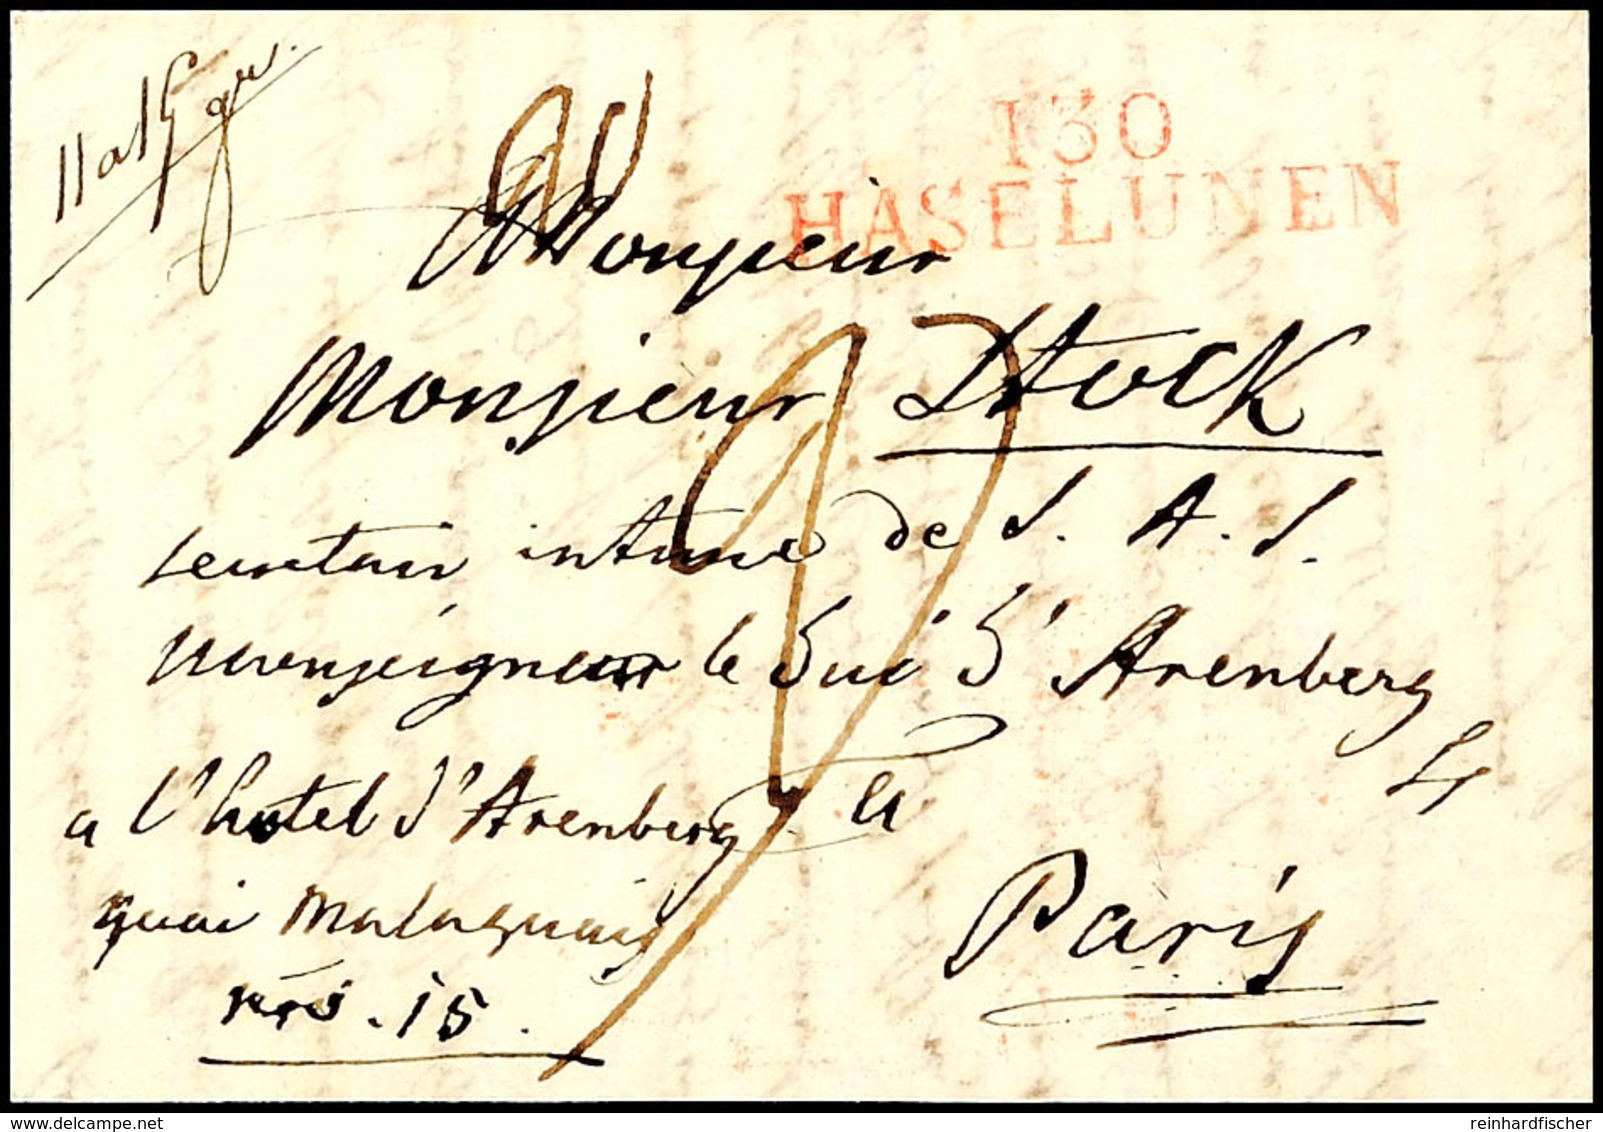 11 a 15 gr.
130
HASELUNEN
A Monsieur
Monsieur Stock
secretair intime de S. A. S.
monseigneur le Duc d'Arenberg
a l'hotel d'Arenberg a
quai Malaquais Paris
nro. 15.
delcampe.net
reinhardfischer